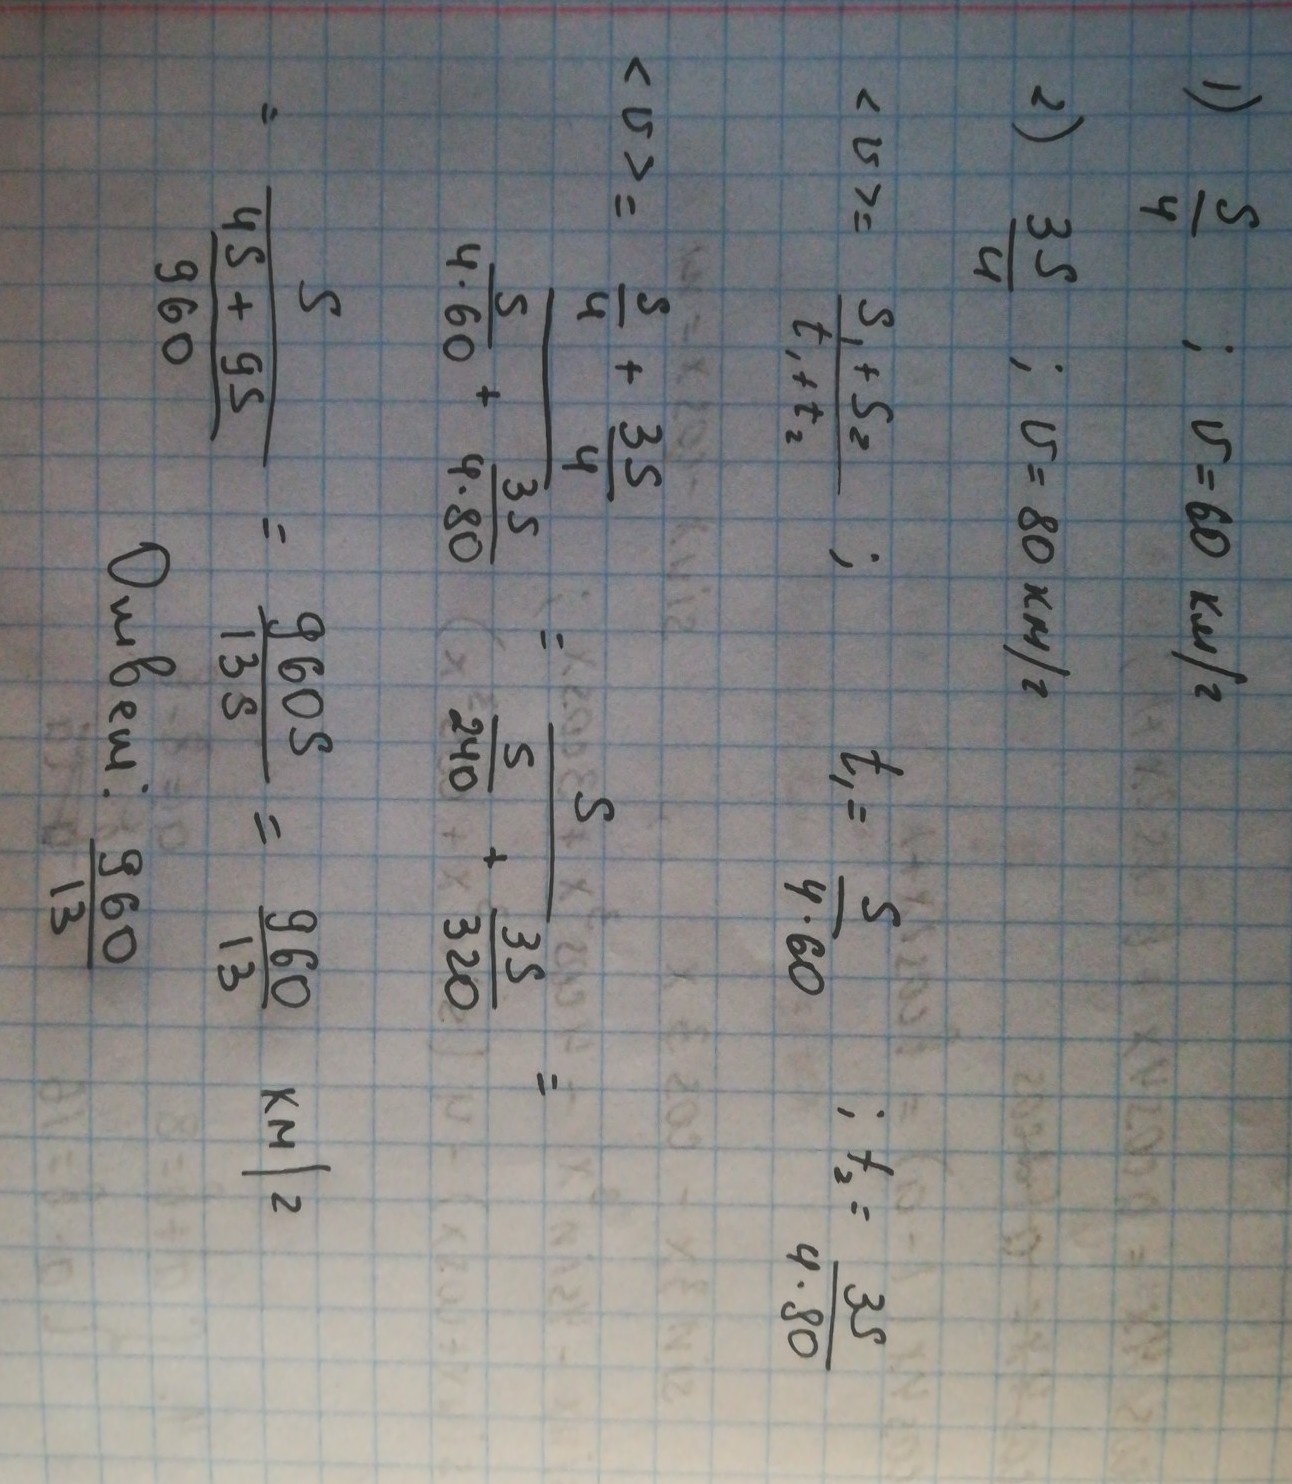 1) S/4 ; v = 60 км/г
2) 3S/4 ; v = 80 км/г
<v> = (S₁ + S₂)/(t₁ + t₂) ; t₁ = S/(4·60) ; t₂ = 3S/(4·80)
<v> = (S/4 + 3S/4)/(S/(4·60) + 3S/(4·80)) = S/(S/240 + 3S/320) =
= S/((4S + 9S)/960) = 960S/13S = 960/13 км/г
Ответ: 960/13